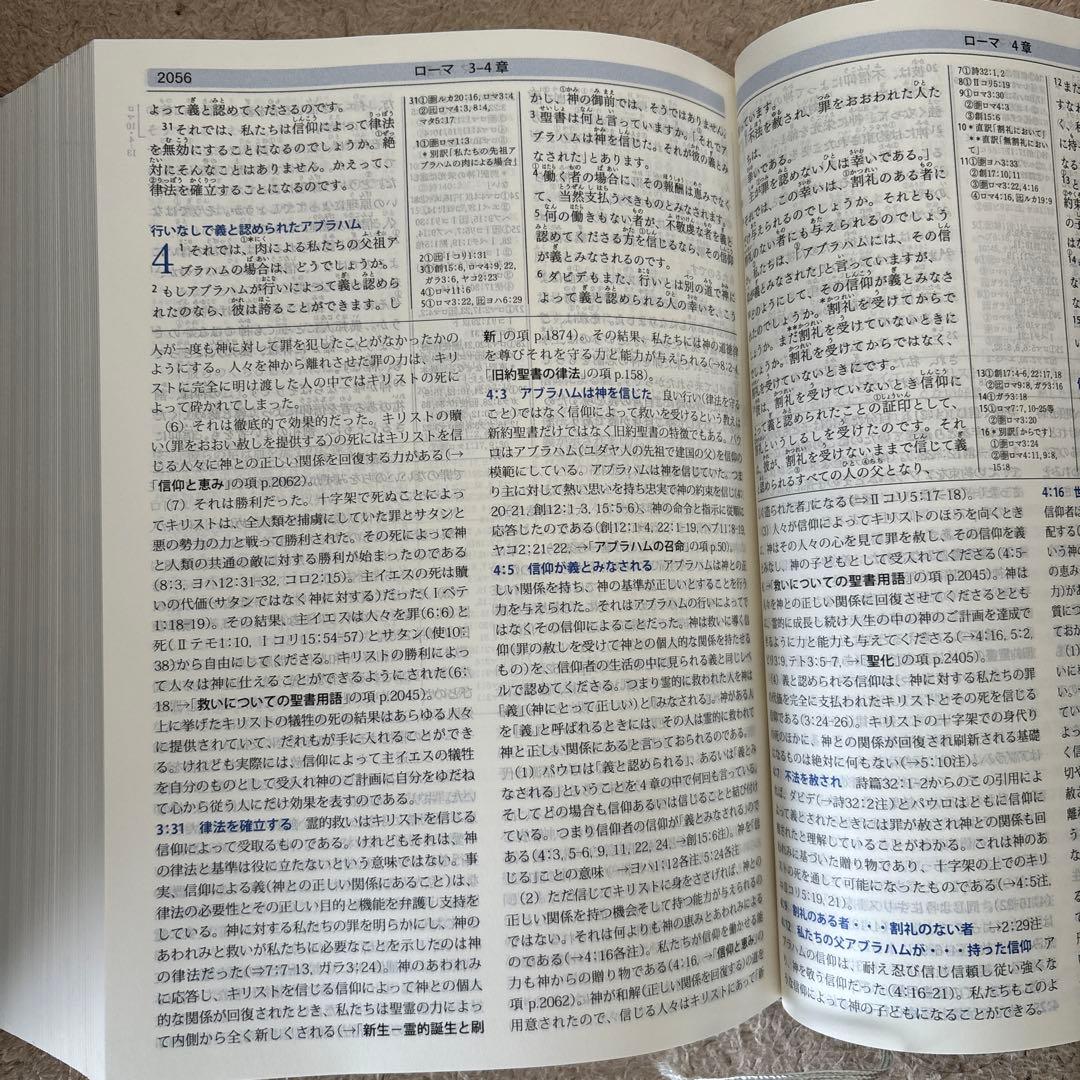 2056
ローマ 3-4章
よって義と認めてくださるのです。
31それでは、私たちは信仰によって律法
を無効にすることになるのでしょうか。絶
対にそんなことはありません。かえって、
律法を確立することになるのです。
行いなしで義と認められたアブラハム
4
1 それでは、肉による私たちの父祖ア
ブラハムの場合は、どうでしょうか。
2 もしアブラハムが行いによって義と認めら
れたのなら、彼は誇ることができます。し
31①圏ルカ20:16,ロマ3:4
②囸ロマ4:3,8:4,
マタ5:17
1①圏ロマ1:3
*別訳「私たちの先祖
アブラハムの肉による場合」
2①囸Ⅰコリ1:31
3①創15:6,ロマ4:9,22,
ガラ3:6,ヤコ2:23
4①ロマ11:6
5①ロマ3:22,囸ヨハ6:29
かし、神の御前では、そうではありません。
3聖書は何と言っていますか。「それでア
ブラハムは神を信じた。それが彼の義とみ
なされた」とあります。
4働く者の場合に、その報酬は恵みでなく
て、当然支払うべきものとみなされます。
5何の働きもない者が、不敬虔な者を義と
認めてくださる方を信じるなら、その信仰
が義とみなされるのです。
6 ダビデもまた、行いとは別の道で神に
よって義と認められる人の幸いを、こう
人が一度も神に対して罪を犯したことがなかったかの
ようにする。人々を神から離れさせた罪の力は、キリ
ストに完全に明け渡した人の中ではキリストの死に
よって砕かれてしまった。
(6) それは徹底的で効果的だった。キリストの贖
い(罪をおおい赦しを提供する)の死にはキリストを信
じる人々に神との正しい関係を回復する力がある(→
「信仰と恵み」の項 p.2062)。
(7) それは勝利だった。十字架で死ぬことによっ
てキリストは、全人類を捕虜にしていた罪とサタンと
悪の勢力の力と戦って勝利された。その死によって神
と人類の共通の敵に対する勝利が始まったのである
(8:3, ヨハ12:31-32, コロ2:15)。主イエスの死は贖
いの代価(サタンではなく神に対する)だった(Ⅰペテ
1:18-19)。その結果、主イエスは人々を罪(6:6)と
死(Ⅱテモ1:10, Ⅰコリ15:54-57)とサタン(使10:
38)から自由にしてくださる。キリストの勝利によっ
て人々は神に仕えることができるようにされた(6:
18, →「救いについての聖書用語」の項 p.2045)。
上に挙げたキリストの犠牲の死の結果はあらゆる人々
に提供されていて、だれもが手に入れることができ
る。けれども実際には、信仰によって主イエスの犠牲
を自分のものとして受入れ神のご計画に自分をゆだね
て心から従う人にだけ効果を表すのである。
3:31 律法を確立する 霊的救いはキリストを信じる
信仰によって受取るものである。けれどもそれは、神
の律法と基準は役に立たないという意味ではない。事
実、信仰による義(神との正しい関係にあること)は、
律法の必要性とその正しい目的と機能を弁護し支持を
している。神に対する私たちの罪を明らかにし、神の
あわれみと救いが私たちに必要なことを示したのは神
の律法だった(⇒7:7-13, ガラ3:24)。神のあわれみ
に応答し、キリストを信じる信仰によって神との個人
的な関係が回復されたとき、私たちは聖霊の力によっ
て内側から全く新しくされる(→「新生－霊的誕生と刷
新」の項 p.1874)。その結果、私たちには神の道徳律
を尊びそれを守る力と能力が与えられる(→8:2-4,
「旧約聖書の律法」の項 p.158)。
4:3 アブラハムは神を信じた 良い行い(律法を守る
こと)ではなく信仰によって救いを受けるという教えは
新約聖書だけではなく旧約聖書の特徴でもある。パウ
ロはアブラハム(ユダヤ人の先祖で建国の父)を信仰の
模範にしている。アブラハムは神を信じていた。つま
り主に対して熱い思いを持ち忠実で神の約束を信じ(4:
20-21, 創12:1-3, 15:5-6)、神の命令と指示に従順に
応答したのである(創12:1-4, 22:1-19, ヘブ11:8-19,
ヤコ2:21-22, →「アブラハムの召命」の項 p.50)。
4:5 信仰が義とみなされる アブラハムは神との正
しい関係を持ち、神の基準が正しいとすることを行う
力を与えられた。それはアブラハムの行いによってで
はなくその信仰によることだった。神は救いに導く信
仰(罪の赦しを受けて神との個人的な関係を持たせる
もの)を、信仰者の生活の中に見られる義と同じレベ
ルで認めてくださる。つまり霊的に救われた人を神は
「義」(神にとって正しい)と「みなされる」。神がある人
を「義」と呼ばれるときには、その人は霊的に救われて
神と正しい関係にあると言っておられるのである。
(1) パウロは「義と認められる」、あるいは「義とみ
なされる」ということを4章の中で何回も言っている。
そしてどの場合も信仰あるいは信じることと結び付け
ている。つまり信仰者の信仰が「義とみなされる」ので
ある(4:3, 5-6, 9, 11, 22, 24, →創15:6注)。神を「信
じる」ことの意味 →ヨハ1:12各注, 5:24各注
(2) ただ信じてキリストに身をささげれば、神との
正しい関係を持つ機会そして持つ能力が与えられるの
ではない。それは何よりも神の恵みとあわれみによる
のである(→4:16各注)。私たちが信仰を働かせる能
力も神からの贈り物である(4:16, →「信仰と恵み」の
項 p.2062)。神が和解(正しい関係を回復する)の道を
用意されたので、信じる人々はキリストにあって「新
ローマ 4章
います。
「不法を赦され、罪をおおわれた人た
ちは、
幸いである。
主が罪を認めない人は幸いである。」
それでは、この幸いは、割礼のある者に
与えられるのでしょうか。それとも、
のない者にも与えられるのでしょう
私たちは、「アブラハムには、その信
義とみなされた」と言っていますが、
のようにして、その信仰が義とみなさ
たのでしょうか。割礼を受けてからで
ょうか。まだ割礼を受けていないときに
しょうか。割礼を受けてからではなく、
を受けていないときにです。
は、割礼を受けていないとき信仰に
て義と認められたことの証印として、
というしるしを受けたのです。それ
彼が、割礼を受けないままで信じて義
認められるすべての人の父となり、
7①詩32:1,2
8①囸ロマ5:19
9①ロマ3:30
②囸ロマ4:3
③創15:6
10*直訳「割礼において」
**直訳「無割礼におい
て」
11①圏ヨハ3:33
②創17:10,11
③圏ロマ3:22,4:16
④ロマ4:16,囸ルカ19:9
13①創17:4-6,22:17,18
②囸ロマ9:8,ガラ3:16
14①ガラ3:18
15①ロマ7:7,10-25等
②圏ロマ3:20
16*別訳「からです」
①圏ロマ3:24
②圏ロマ4:11,9:8,
15:8
く造られた者」になる(⇒Ⅱコリ5:17-18)。
(3) 人々が信仰によってキリストのほうを向くとき
に、神はその人々の心を見て罪を赦し、その信仰を義
とみなし、神の子どもとして受入れてくださる(4:5-
→「救いについての聖書用語」の項 p.2045)。神は
々を神との正しい関係に回復させてくださるととも
、霊的に成長し続け人生の中の神のご計画を達成で
るように力と能力も与えてくださる(→4:16, 5:2,
3:9, テト3:5-7, →「聖化」の項 p.2405)。
(4) 義と認められる信仰は、神に対する私たちの罪
の代価を完全に支払われたキリストとその死を信じる
信仰である(3:24-26)。キリストの十字架での身代り
の死のほかに、神との関係が回復され刷新される基礎
になるものは絶対に何もない(→5:10注)。
4:7 不法を赦され 詩篇32:1-2からのこの引用によ
れば、ダビデ(→詩32:2注)とパウロはともに信仰に
よって義とされたときには罪が赦され神との関係も回
復されたと理解していることがわかる。これは神のあ
われみに基づいた贈り物であり、十字架の上でのキリ
ストの死を通して可能になったものである(→4:5注,
Ⅱコリ5:19, 21)。
4:9 割礼のある者・・・割礼のない者 →2:29注
4:12 私たちの父アブラハムが・・・持った信仰 ア
ブラハムの信仰は、「耐え忍び信じ信頼し従い強くな
り、神を敬う信仰だった(4:16-21)。私たちもこのよ
うな信仰によって神の子どもになることができる。
4:16 世
信仰者に
配する(
いう神の
の恵み